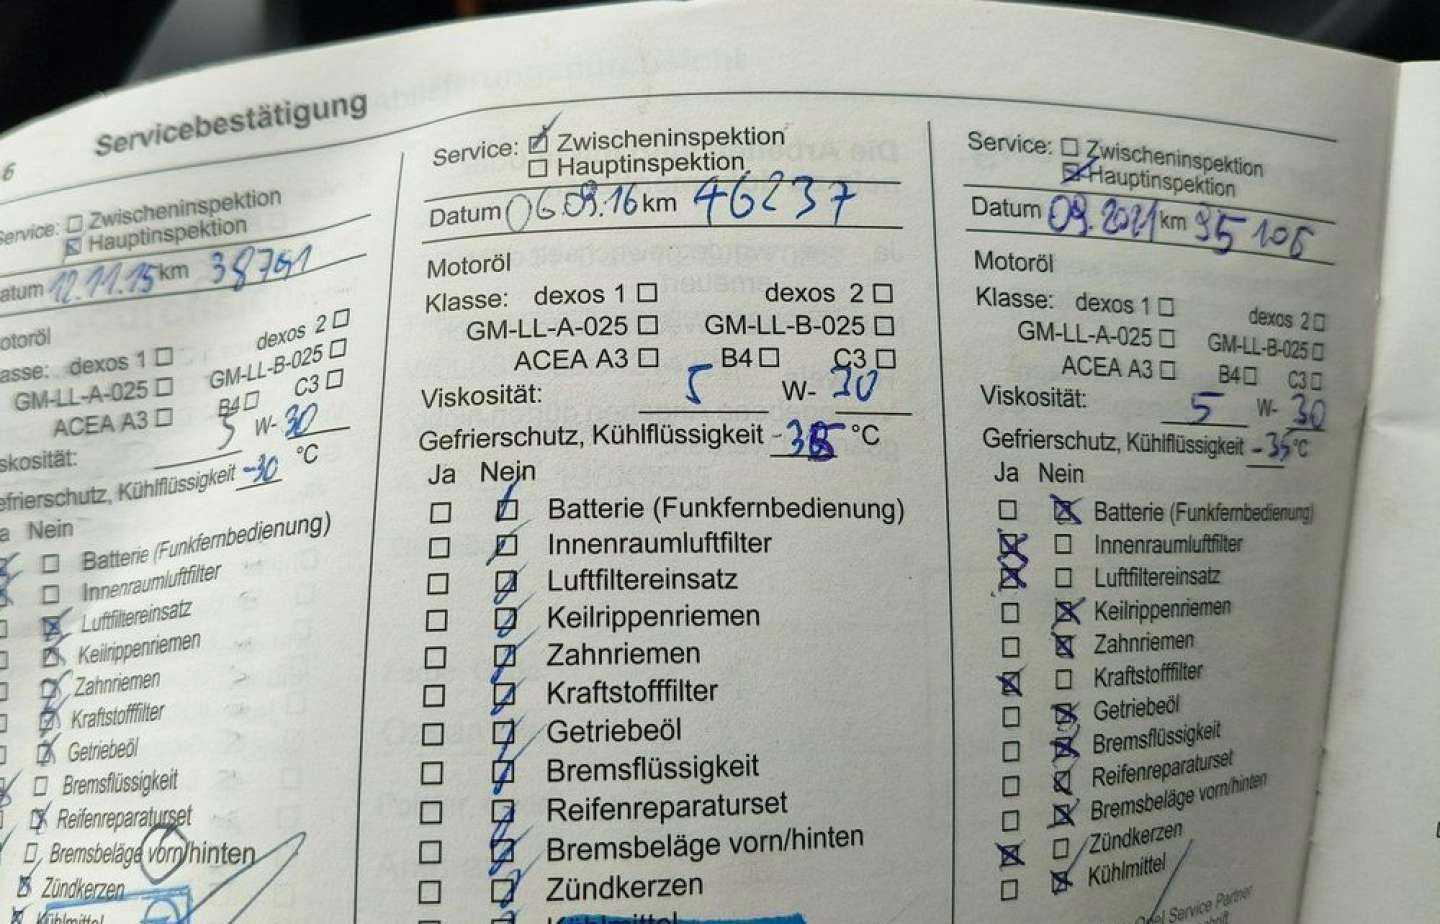 6
Servicebestätigung
Service: ☐ Zwischeninspektion
☒ Hauptinspektion
atum 12.11.15 km 38791
otoröl
asse: dexos 1 ☐ dexos 2 ☐
GM-LL-A-025 ☐ GM-LL-B-025 ☐
ACEA A3 ☐ B4 ☐ C3 ☐
skosität: 5 W- 30
efrierschutz, Kühlflüssigkeit -30 °C
a Nein
Batterie (Funkfernbedienung)
Innenraumluftfilter
Luftfiltereinsatz
Keilrippenriemen
Zahnriemen
Kraftstofffilter
Getriebeöl
Bremsflüssigkeit
Reifenreparaturset
Bremsbeläge vorn/hinten
Zündkerzen
Kühlmittel
Service: ☒ Zwischeninspektion
☐ Hauptinspektion
Datum 06.09.16 km 46237
Motoröl
Klasse: dexos 1 ☐ dexos 2 ☐
GM-LL-A-025 ☐ GM-LL-B-025 ☐
ACEA A3 ☐ B4 ☐ C3 ☐
Viskosität: 5 W- 30
Gefrierschutz, Kühlflüssigkeit -35 °C
Ja Nein
Batterie (Funkfernbedienung)
Innenraumluftfilter
Luftfiltereinsatz
Keilrippenriemen
Zahnriemen
Kraftstofffilter
Getriebeöl
Bremsflüssigkeit
Reifenreparaturset
Bremsbeläge vorn/hinten
Zündkerzen
Kühlmittel
Service: ☐ Zwischeninspektion
☒ Hauptinspektion
Datum 09.2021 km 95106
Motoröl
Klasse: dexos 1 ☐ dexos 2 ☐
GM-LL-A-025 ☐ GM-LL-B-025 ☐
ACEA A3 ☐ B4 ☐ C3 ☐
Viskosität: 5 W- 30
Gefrierschutz, Kühlflüssigkeit -35 °C
Ja Nein
Batterie (Funkfernbedienung)
Innenraumluftfilter
Luftfiltereinsatz
Keilrippenriemen
Zahnriemen
Kraftstofffilter
Getriebeöl
Bremsflüssigkeit
Reifenreparaturset
Bremsbeläge vorn/hinten
Zündkerzen
Kühlmittel
Opel Service Partner